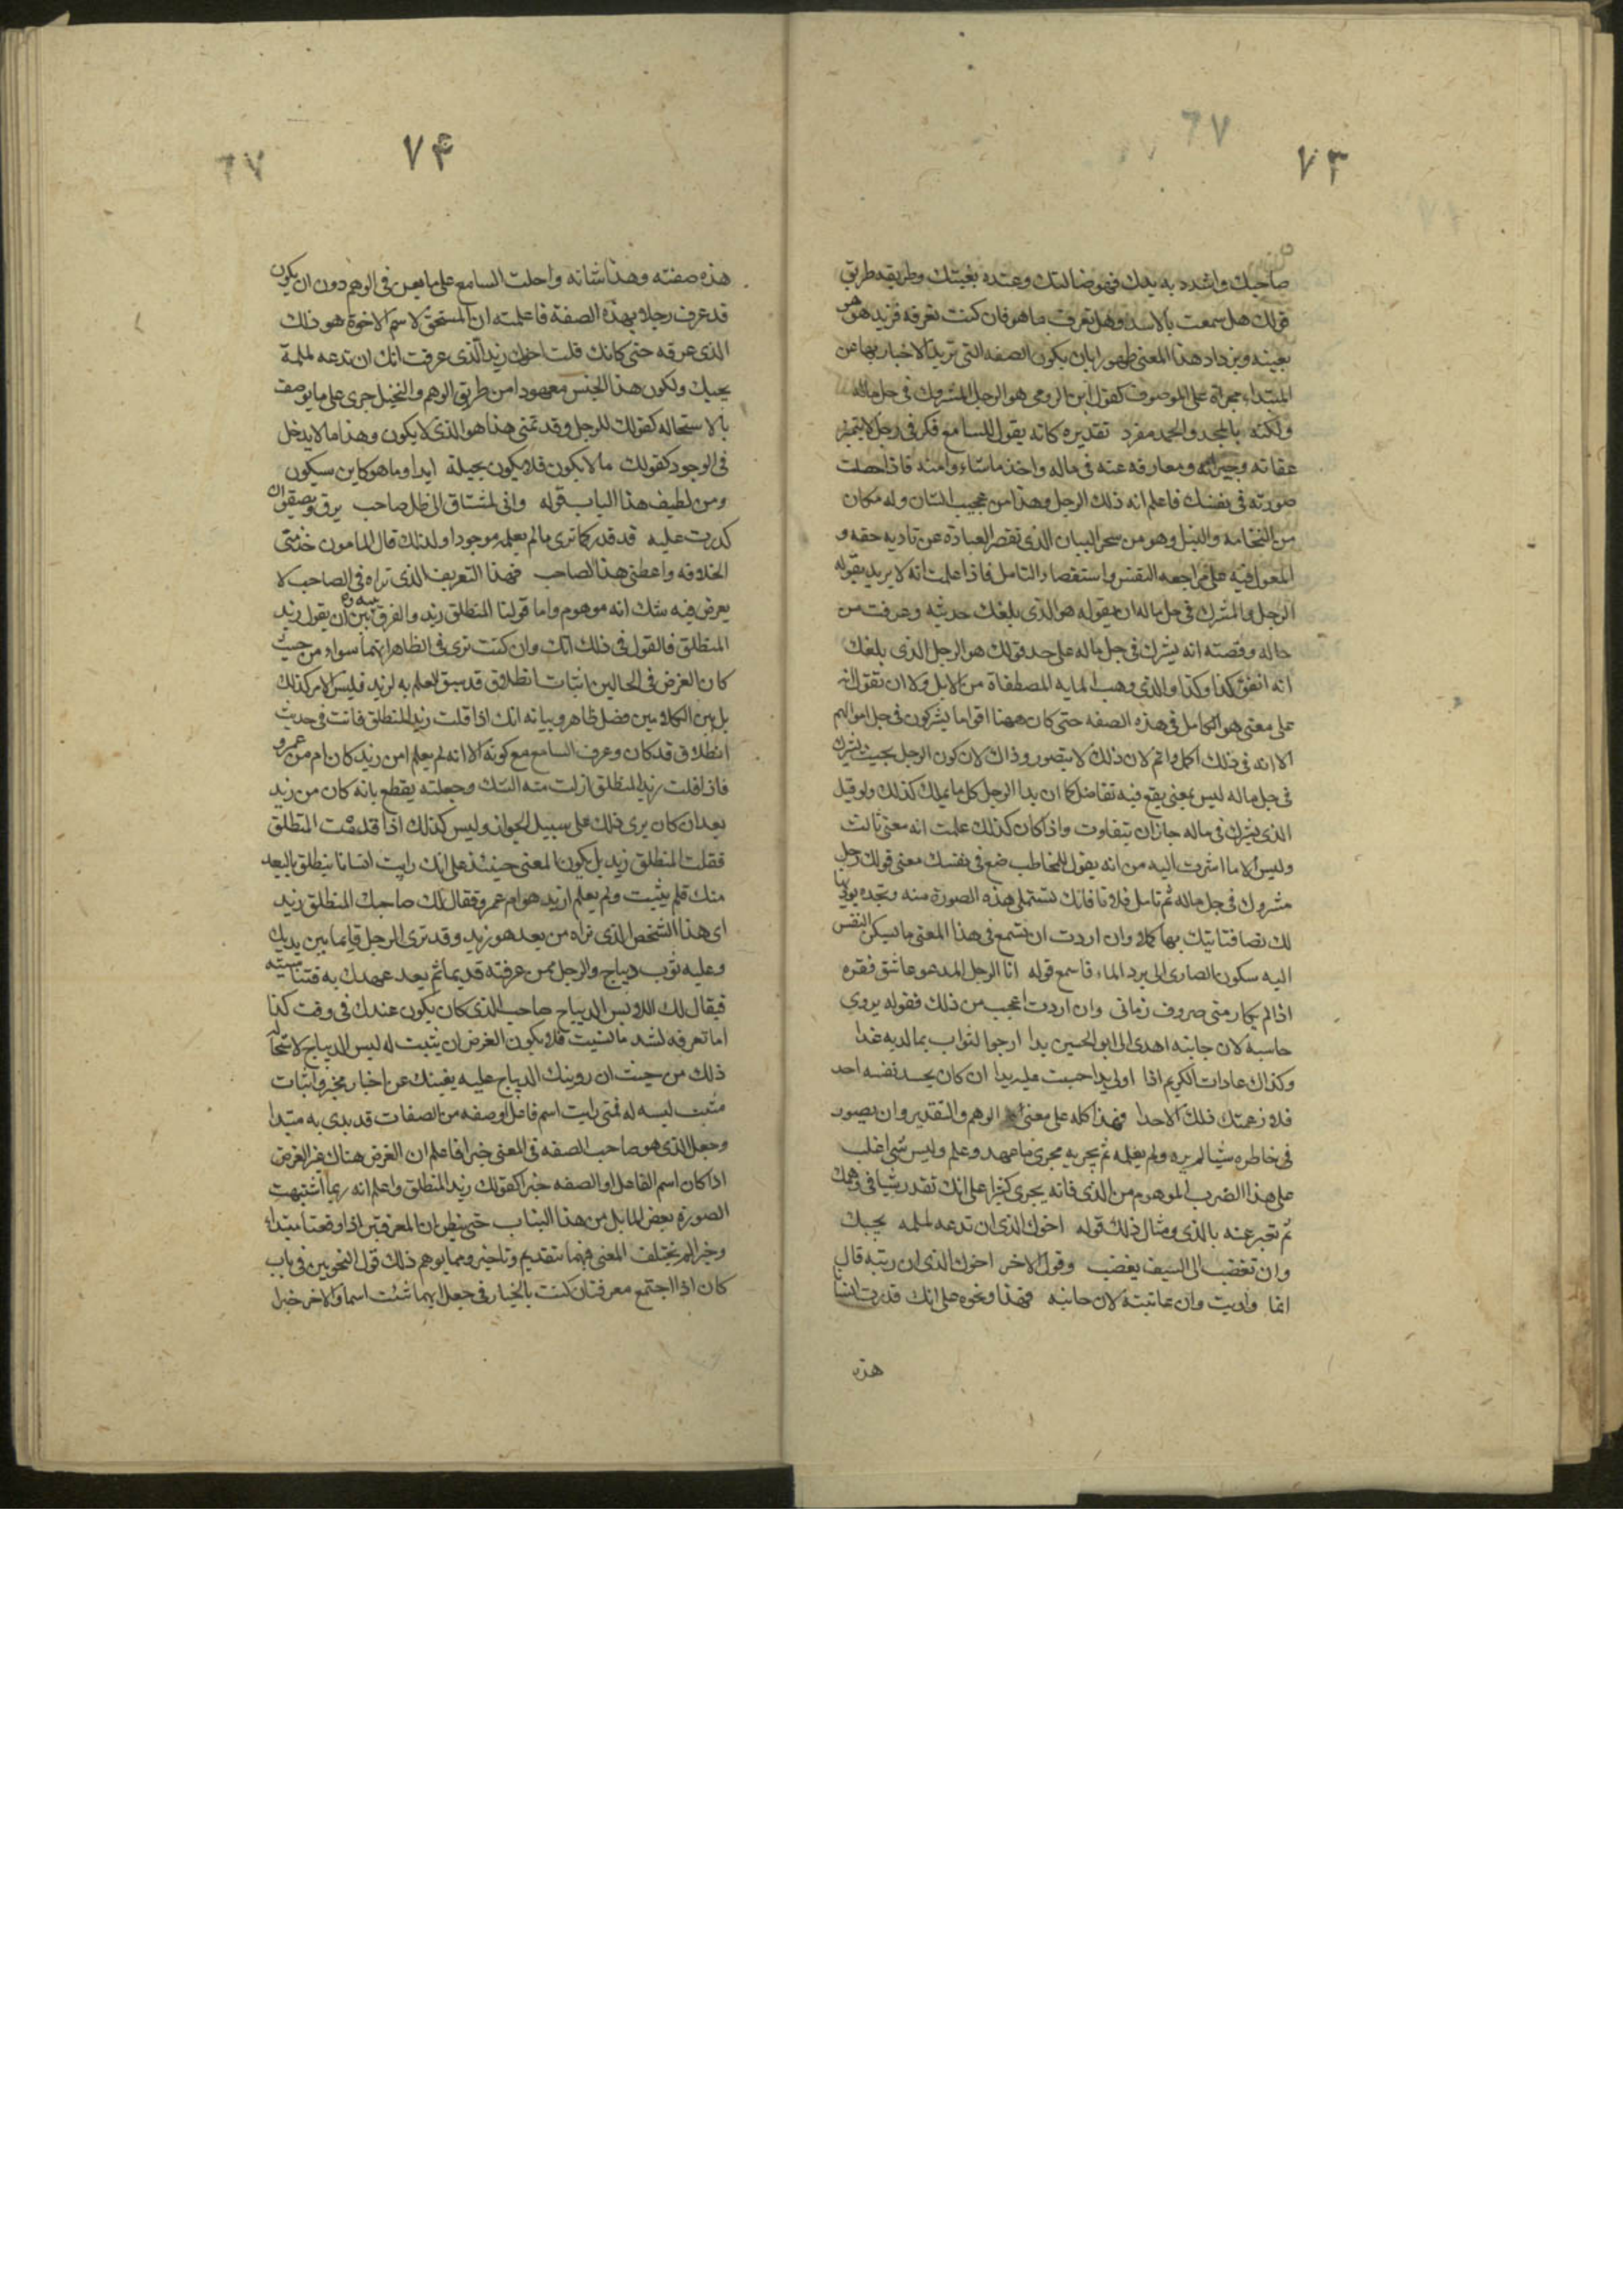 ٧٣
٦٧
صاحبك واشدد به يدك فهو ضالتك وعنده بغيتك وطريقه طريق
قولك هل سمعت بالاسد وهل تعرف ما هو فان كنت تعرفه فزيد هو هو
بعينه ويزداد هذا المعنى ظهورا بان يكون الصفه التى تريد الاخبار بها عن
المبتداء مجراة على الموصوف كقول ابن الرومى هو الرجل المشروك فى جل ماله
ولكنه بالمجد والحمد مفرد تقديره كانه يقول للسامع فكر فى رجل لا يتميز
عفاته وجيرانه ومعارفه عنه فى ماله واخذ ما شاء وامنه فاذا حصلت
صورته فى نفسك فاعلم انه ذلك الرجل وهذا من عجيب الشان وله مكان
من الفخامه والنبل وهو من سحر البيان الذى تقصر العبادة عن تاديه حقه و
المعول فيه على مراجعه النفس واستقصاء التامل فاذا علمت انه لا يريد بقوله
الرجل المشرك فى جل ماله ان يقوله هو الذى بلغك حديثه وعرفت من
حاله وقصته انه يشرك فى جل ماله على حد قولك هو الرجل الذى بلغك
انه انفق كذا وكذا والذى وهب المايه المصطفاة من الابل ولا ان تقول انه
على معنى هو الكامل فى هذه الصفه حتى كان ههنا اقواما يشركون فى جل اموالهم
الا انه فى ذلك اكمل واتم لان ذلك لا يتصور وذاك لان كون الرجل بحيث يشرك
فى جل ماله ليس بمعنى يقع فيه تفاضل كما ان بدا الرجل كل ما يملك كذلك ولو قيل
الذى يشرك فى ماله جاز ان يتفاوت واذا كان كذلك علمت انه معنى ثالث
وليس الا ما اشرت اليه من انه يقول للمخاطب ضع فى نفسك معنى قولك رجل
مشروك فى جل ماله ثم تامل فلانا فانك تستملى هذه الصورة منه وتجده يوديها
لك نصا فتاتيك بها كملا وان اردت ان تسمع فى هذا المعنى ما تسكن النفس
اليه سكون الصادى الى برد الماء فاسمع قوله انا الرجل المدعو عاشق فقره
اذا لم يكارمنى صروف زمانى وان اردت اعجب من ذلك فقوله يروى
حاسبة لان جانبه اهدى الى ابو الحسين يدا ارجوا لثواب بها لديه غدا
وكذاك عادات الكريم اذا اولى يدا حسبت عليه يدا ان كان يحسد نفسه احد
فلا زعمتك ذلك الاحدا فهذا كله على معنى الوهم والتقدير وان يصور
فى خاطره شيا لم يره ولم يعلمه ثم يجريه مجرى ما عهد وعلم وليس شى اغلب
على هذا الضرب الموهوم من الذى فانه يجرى كثيرا على انك تقدر شيا فى وهمك
ثم تعبر عنه بالذى ومثال ذلك قوله اخوك الذى ان تدعه لملمه يجبك
وان تغضب الى السيف يغضب وقول الاخر اخوك الذى ان ربته قال
انما واديت وان عاتبته لان جانبه فهذا ونحوه على انك قدرت انسانا
هذه
٧۴
٦٧
هذه صفته وهذا شانه واحلت السامع على ما يعن فى الوهم دون ان يكون
قد عرف رجلا بهذه الصفة فاعلمته ان المستحق لاسم الاخوة هو ذلك
الذى عرفه حتى كانك قلت اخوك زيد الذى عرفت انك ان تدعه لملمة
يجبك ولكون هذا الجنس معهودا من طريق الوهم والتخيل جرى على ما يوصف
بالاستحاله كقولك للرجل وقد تمنى هذا هو الذى لا يكون وهذا ما لا يدخل
فى الوجود كقولك ما لا يكون فلا يكون بحيلة ابدا وما هو كاين سيكون
ومن لطيف هذا الباب قوله وانى لمشتاق الى ظل صاحب يرق ويصفو ان
كدرت عليه قد قدر كما ترى ما لم يعلمه موجودا ولذلك قال المامون خذ منى
الخلافه واعطنى هذا الصاحب فهذا التعريف الذى تراه فى الصاحب لا
يعرض فيه شك انه موهوم واما قولنا المنطلق زيد والفرق بينه وبين ان يقول زيد
المنطلق فالقول فى ذلك انك وان كنت ترى فى الظاهر انهما سواء من حيث
كان الغرض فى الحالين اثبات انطلاق قد سبق العلم به لزيد فليس الامر كذلك
بل بين الكلامين فضل ظاهر وبيانه انك اذا قلت زيد المنطلق فانت فى حديث
انطلاق قد كان وعرف السامع مع كونه الا انه لم يعلم امن زيد كان ام من عمرو
فاذا قلت زيد المنطلق ازلت منه الشك وجعلته يقطع بانه كان من زيد
بعد ان كان يرى ذلك على سبيل الجواز وليس كذلك اذا قدمت المنطلق
فقلت المنطلق زيد بل يكون المعنى حينئذ على انك رايت انسانا ينطلق بالبعد
منك فلم يثبت ولم يعلم ازيد هو ام عمرو فقال لك صاحبك المنطلق زيد
اى هذا الشخص الذى تراه من بعد هو زيد وقد ترى الرجل قايما بين يديك
وعليه ثوب ديباج والرجل ممن عرفته قديما ثم بعد عهدك به فتناسيته
فيقال لك اللابس الديباج صاحبك الذى كان يكون عندك فى وقت كذا
اما تعرفه لشد ما نسيت فلا يكون الغرض ان يثبت له لبس الديباج لاستحاله
ذلك من حيث ان رويتك الديباج عليه يغنيك عن اخبار مخبر واثبات
مثبت لبسه له فمتى رايت اسم فاعل او صفه من الصفات قد بدى به مبتدا
وجعل الذى هو صاحب الصفه فى المعنى خبرا فاعلم ان الغرض هناك غير الغرض
اذا كان اسم الفاعل او الصفه خبرا كقولك زيد المنطلق واعلم انه ربما اشتبهت
الصورة بعض المسايل من هذا الباب حتى يظن ان المعرفتين اذا وقعتا مبتداء
وخبرا لم يختلف المعنى فيهما بتقديم وتاخير ومما يوهم ذلك قول النحويين فى باب
كان اذا اجتمع معرفتان كنت بالخيار فى جعل ايهما شئت اسما والاخر خبرا